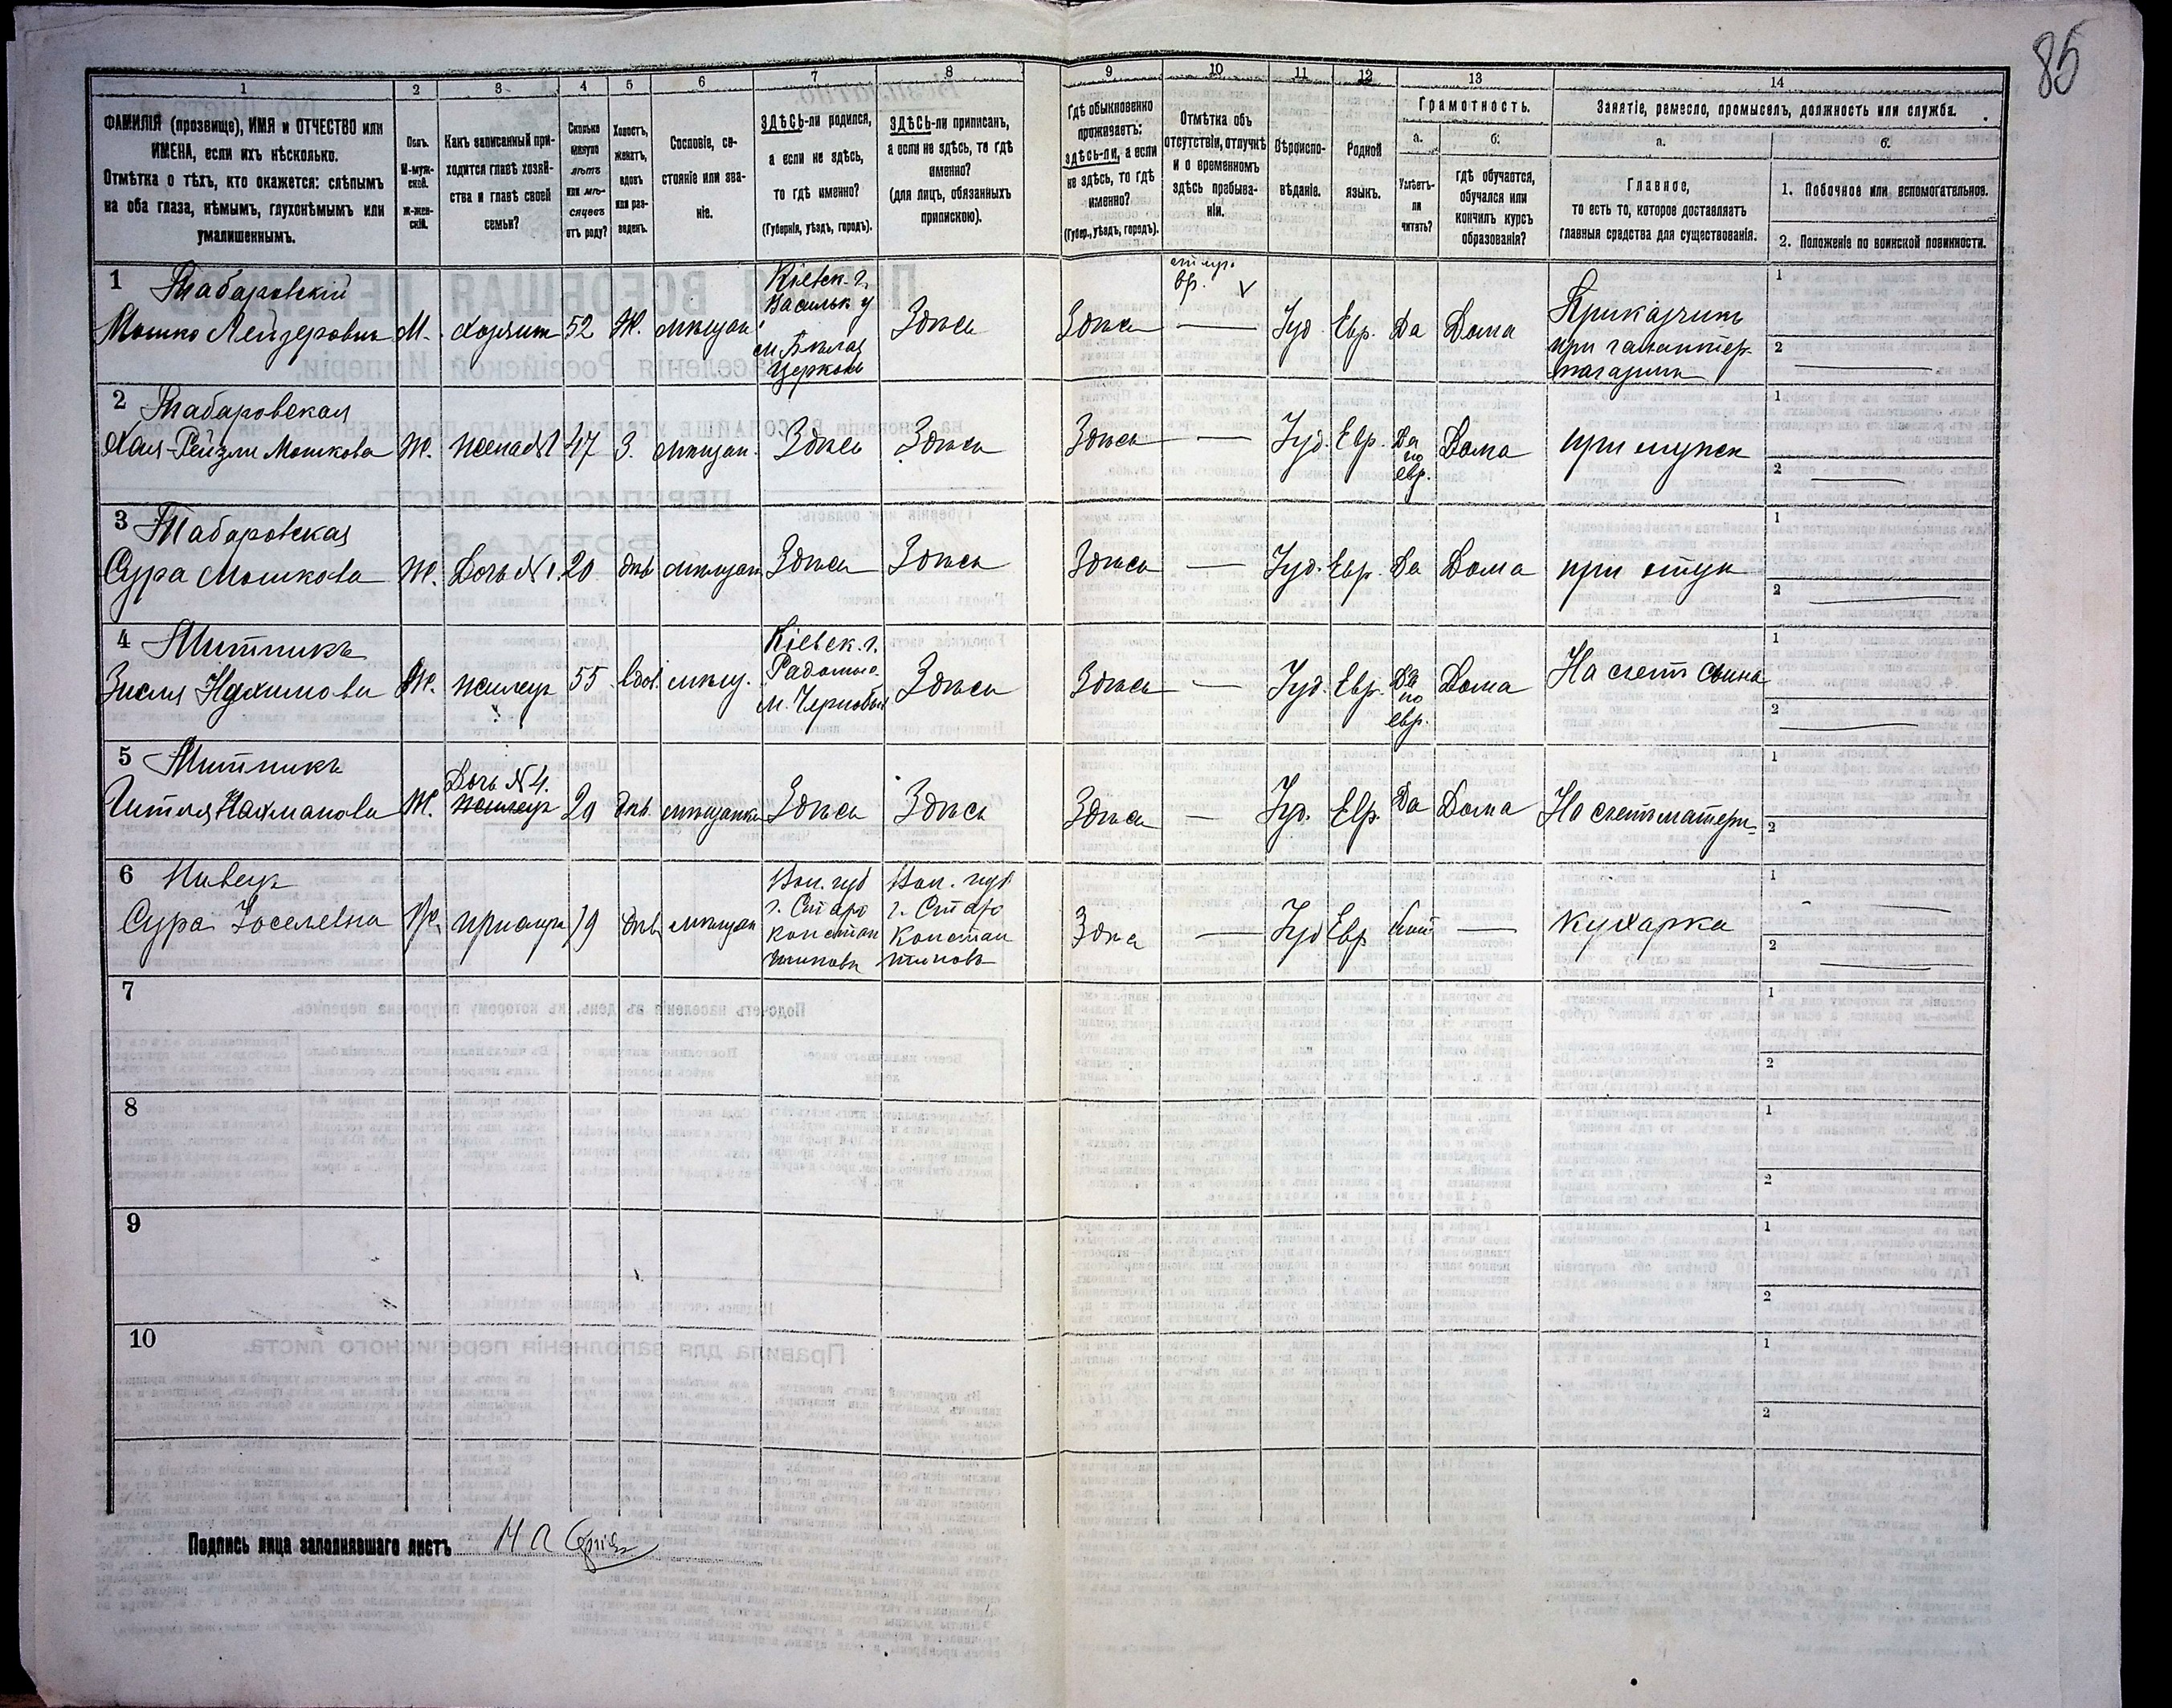 85
1
2
3
4
5
6
7
8
9
10
11
12
13
14
ФАМИЛІЯ (прозвище), ИМЯ и ОТЧЕСТВО или
ИМЕНА, если ихъ нѣсколько.
Отмѣтка о тѣхъ, кто окажется: слѣпымъ
на оба глаза, нѣмымъ, глухонѣмымъ или
умалишеннымъ.
Полъ.
М-муж-
ской.
Ж-жен-
скій.
Какъ записанный при-
ходится главѣ хозяй-
ства и главѣ своей
семьи?
Сколько
минуло
лѣтъ
или мѣ-
сяцевъ
отъ роду?
Холостъ,
женатъ,
вдовъ
или раз-
веденъ.
Сословіе, со-
стояніе или зва-
ніе.
ЗДѢСЬ-ли родился,
а если не здѣсь,
то гдѣ именно?
(Губернія, уѣздъ, городъ).
ЗДѢСЬ-ли приписанъ,
а если не здѣсь, то гдѣ
именно?
(для лицъ, обязанныхъ
припискою).
Гдѣ обыкновенно
проживаетъ:
здѣсь-ли, а если
не здѣсь, то гдѣ
именно?
(Губер., уѣздъ, городъ).
Отмѣтка объ
отсутствіи, отлучкѣ
и о временномъ
здѣсь пребыва-
ніи.
Вѣроиспо-
вѣданіе.
Родной
языкъ.
Грамотность.
а.
Умѣетъ-
ли
читать?
б.
гдѣ обучается,
обучался или
кончилъ курсъ
образованія?
Занятіе, ремесло, промыселъ, должность или служба.
а.
Главное,
то есть то, которое доставляетъ
главныя средства для существованія.
б.
1. Побочное или вспомогательное.
2. Положеніе по воинской повинности.
1 Табаровскій
Мошко Лейзеровичъ М. хозяин 52 Ж. мѣщан
Кіевск. г.
Васильк у
м. Бѣлая
Церковь
Здѣсь
Здѣсь
вр.
Іуд. Евр. Да Дома
Приказчикъ
при галантер.
магазинѣ
1
2
2 Табаровская
Хая-Рейзли Мошкова Ж. жена №1 47 З. мѣщан. Здѣсь Здѣсь
Здѣсь — Іуд. Евр. Да
по
евр.
Дома при мужѣ
1
2
3 Табаровская
Сура Мошкова Ж. Дочь №1. 20 дѣв мѣщан Здѣсь Здѣсь
Здѣсь — Іуд. Евр. Да Дома при отцѣ
1
2
4 Митникъ
Зисля Нахимова Ж. жилец 55 вдов. мѣщ.
Кіевск. г.
Радомыс
м. Чернобыл
Здѣсь
Здѣсь — Іуд. Евр. Да
по
евр.
Дома На счет сына
1
2
5 Митникъ
Гитля Нахманова Ж.
Дочь №4.
жилец
20 дѣв. мѣщанка Здѣсь Здѣсь
Здѣсь — Іуд. Евр. Да Дома На счетъ матери
1
2
6 Пивецъ
Сура Іоселевна Ж. прислуг 19 дѣв. мѣщан
Вол. губ
г. Старо
констан
тиновъ
Вол. губ
г. Старо
Констан
тиновъ
Здѣсь — Іуд Евр — кухарка
1
2
7
1
2
8
1
2
9
1
2
10
1
2
Подпись лица заполнявшаго листъ